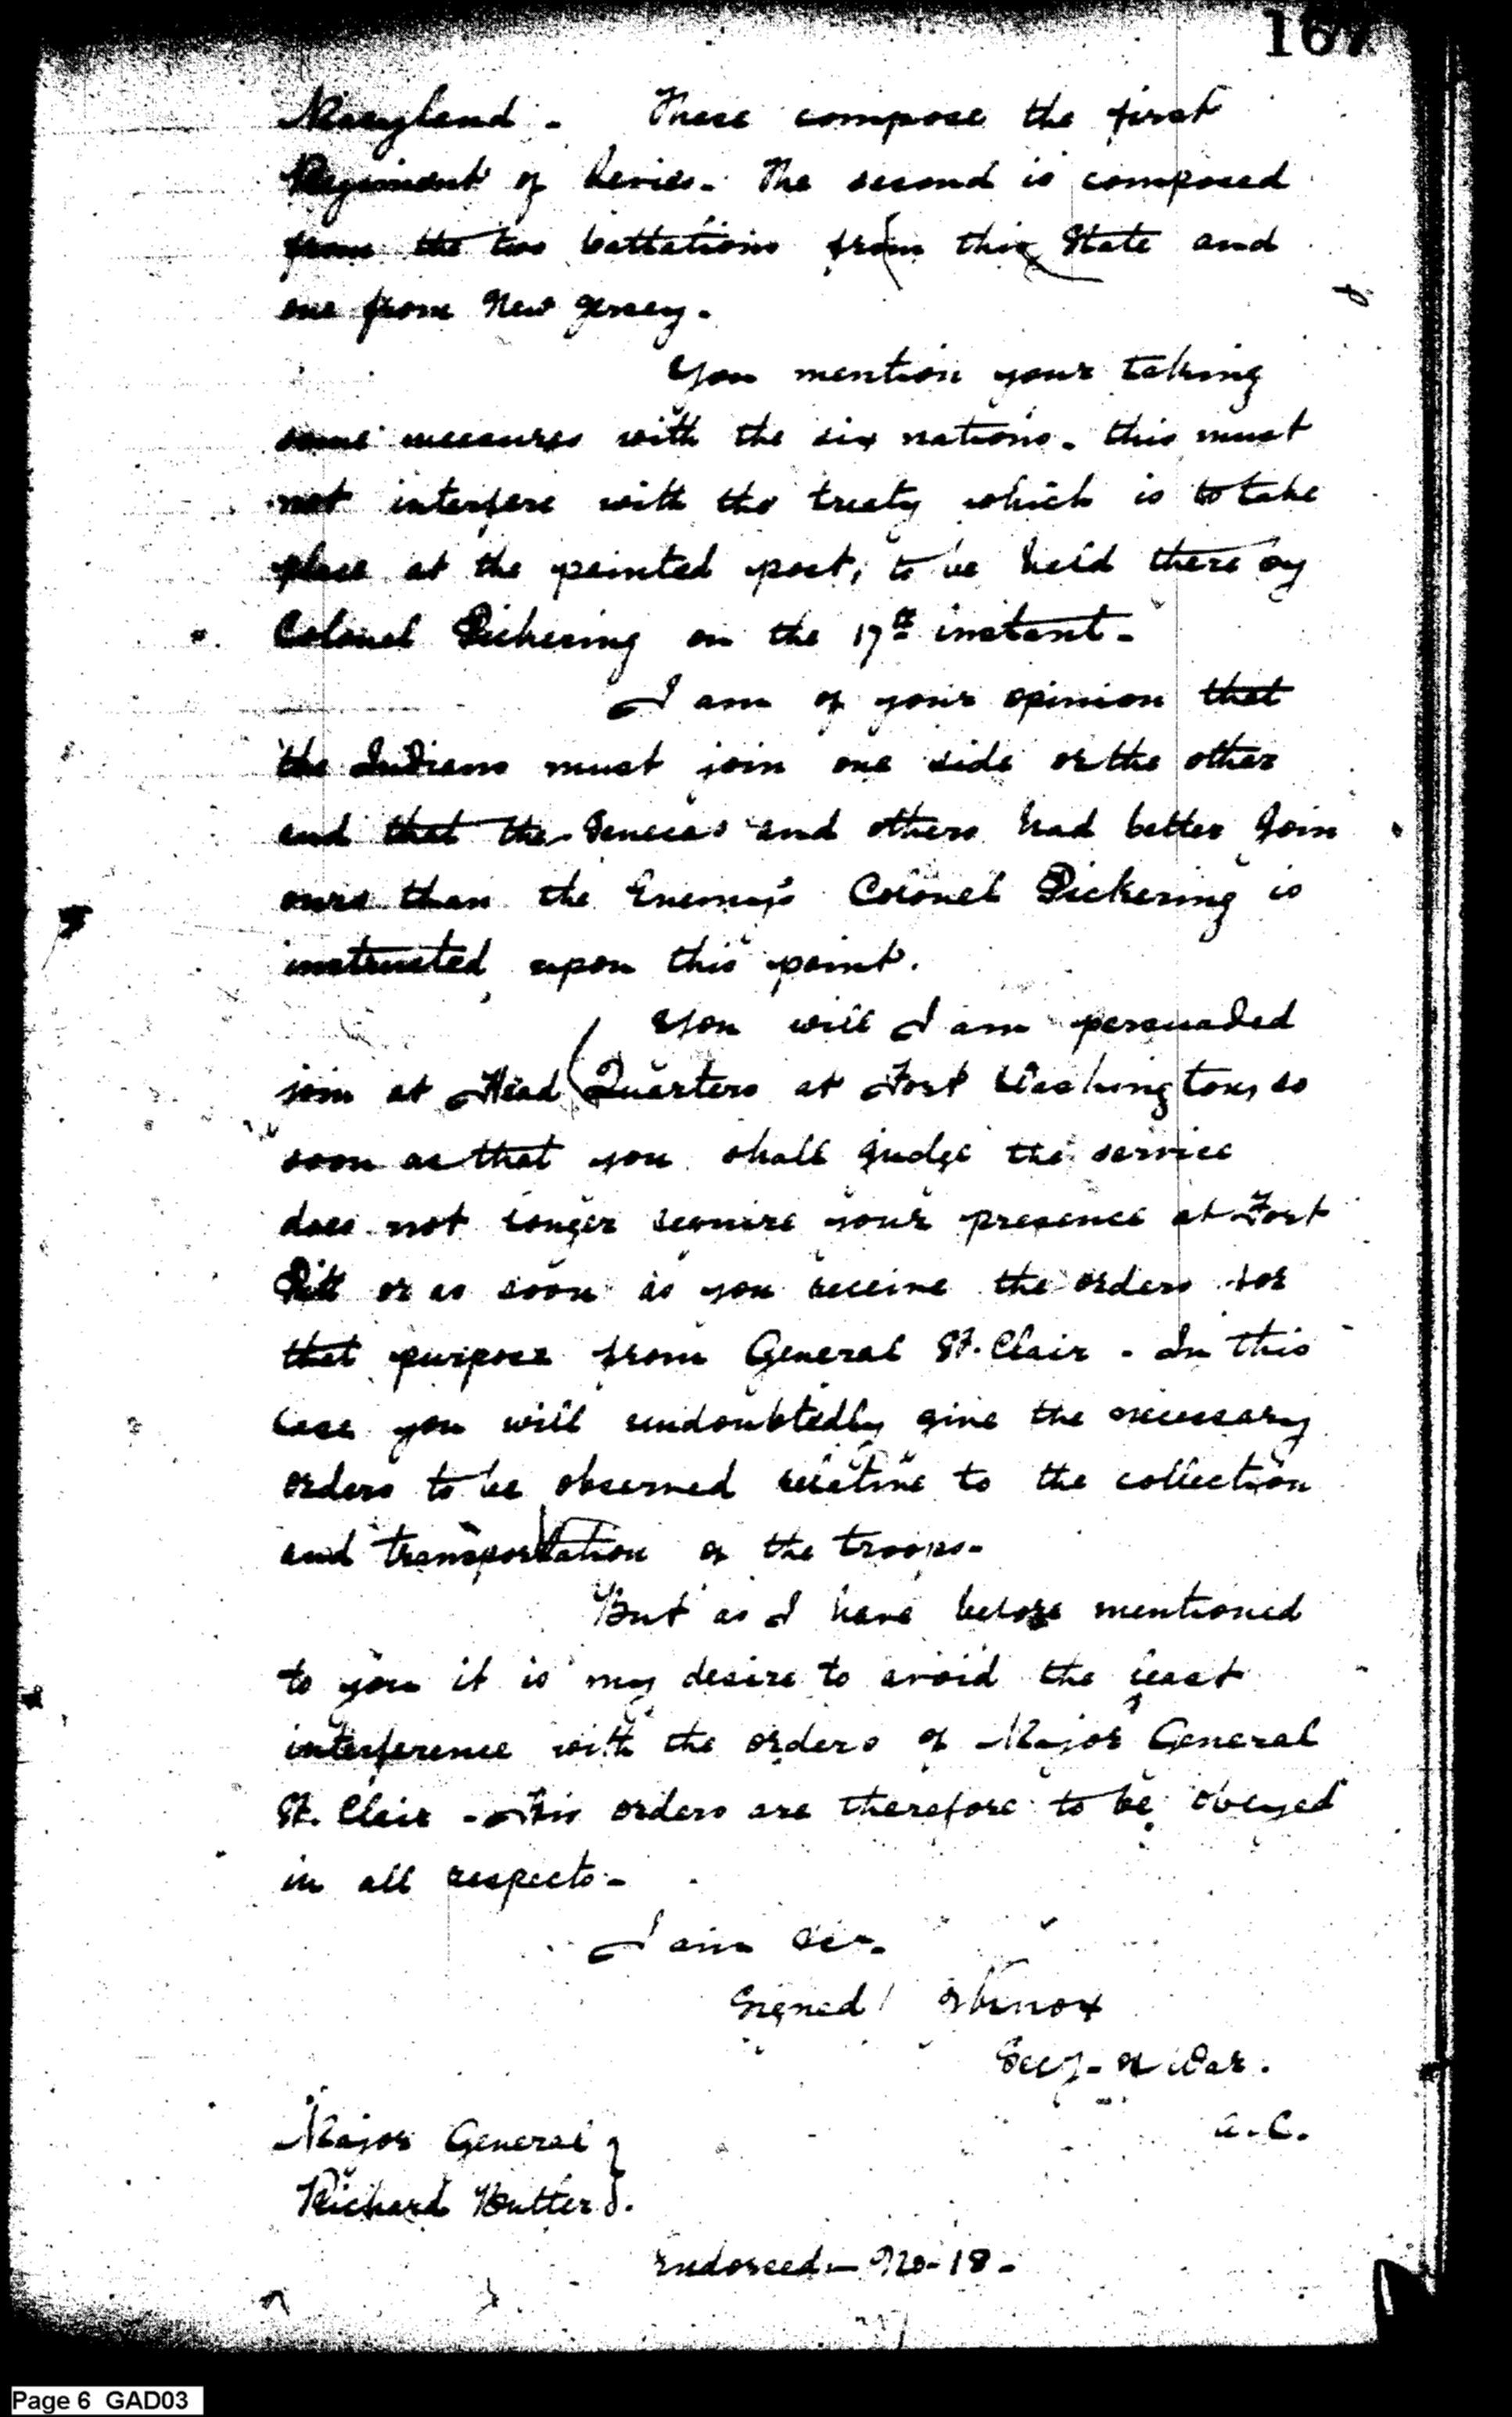 167
Maryland - These compose the first
Regiment of Levies. The second is composed
from the two battalions from this State and
one from New Jersey.
You mention your taking
some measures with the six nations. this must
not interfere with the treaty which is to take
place at the painted post, to be held there by
Colonel Pickering on the 17th instant.
I am of your opinion that
the Indians must join one side or the other
and that the Senecas and others had better join
ours than the Enemy's Colonel Pickering is
instructed upon this point.
You will I am persuaded
join at Head Quarters at Fort Washington, so
soon as that you shall judge the service
does not longer require your presence at Fort
Pitt or as soon as you receive the orders for
that purpose from General St. Clair - In this
case you will undoubtedly give the necessary
orders to be observed relative to the collection
and transportation of the troops-
But as I have before mentioned
to you it is my desire to avoid the least
interference with the orders of Major General
St. Clair - His orders are therefore to be obeyed
in all respects-
I am Sir-
Signed / HKnox
Secy- of War.
a.C.
Major General }
Richard Butler }.
Endorsed - No-18-
Page 6 GAD03